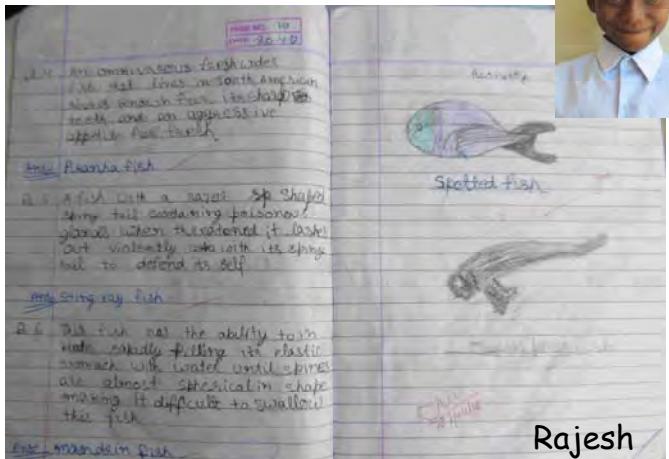 PAGE NO. 10
DATE 20
Q.4 An omnivorous freshwater
fish that lives in South American
rivers known for its sharp
teeth and an aggressive
appetite for fresh
Ans: Piranha fish
Q.5 A fish with a razor sp shaped
spiny tail containing poisonous
glands when threatened it lashes
out violently with its spiny
tail to defend its self
Ans Sting ray fish
Q.6 This fish has the ability to in
rapidly filling its elastic
stomach with water until spines
are almost spherical in shape
making it difficult to swallow
this fish
Ans: mandrin fish
Activity
Spotted fish
Rajesh